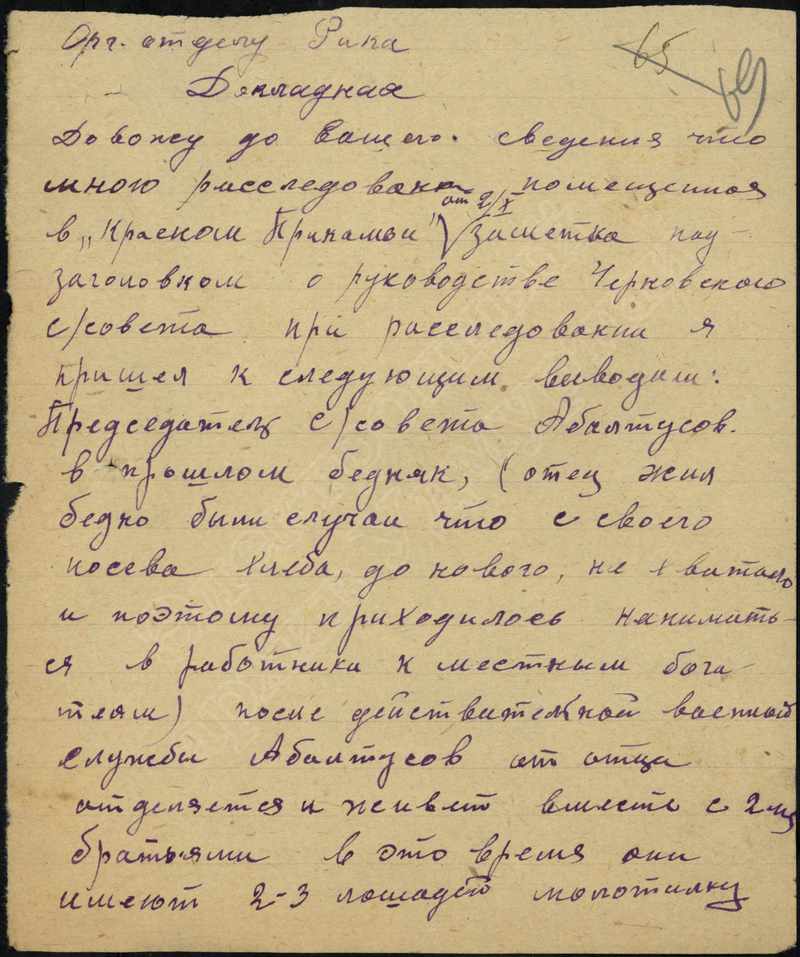 Орг. отделу Рика
65 69
Докладная
Довожу до Вашего. сведения что
мною расследована помещенная
от 2/X
в „Красном Прикамьи" заметка под
заголовком о руководстве Черновского
с/совета при расследовании я
пришел к следующим выводам:
Председатель с/совета Абалтусов.
в прошлом бедняк, (отец жил
бедно были случаи что с своего
посева хлеба, до нового, не хватало
и поэтому приходилось нанимать-
ся в работники к местным бога-
теям) после действительной военной
службы Абалтусов от отца
отделяется и живет вместе с 2-мя
братьями в это время они
имеют 2-3 лошадей молотилку